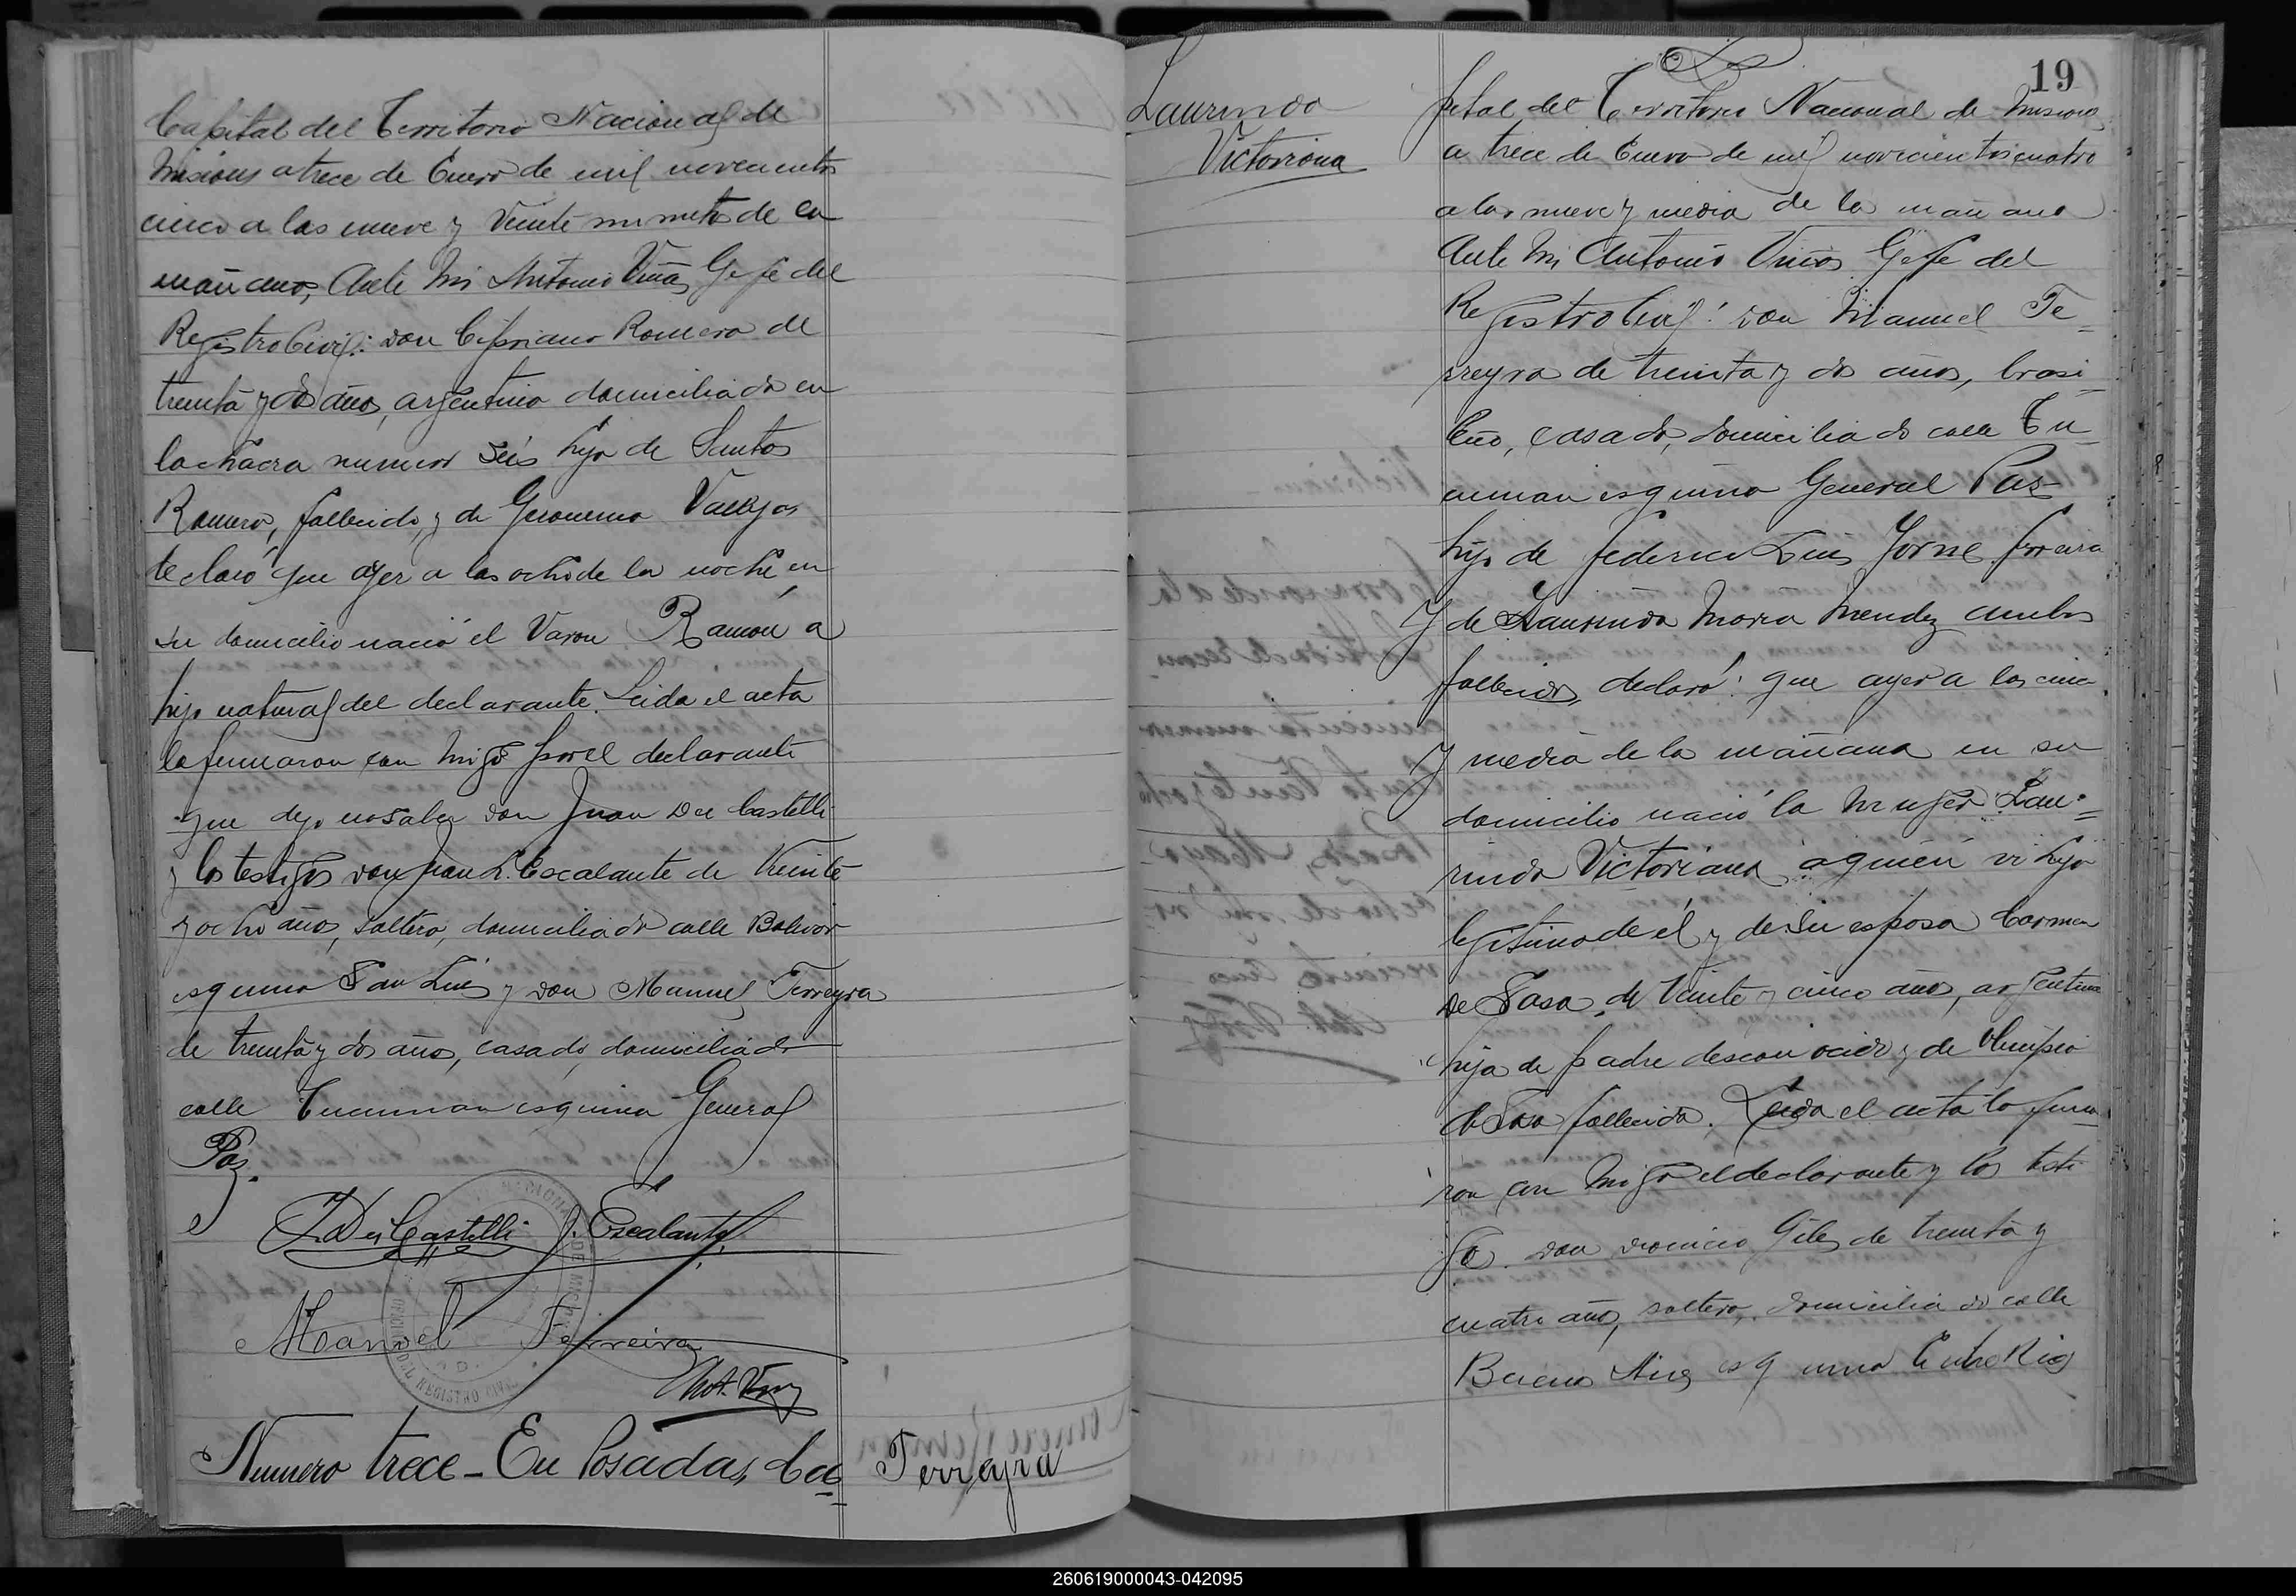 Capital del Territorio Nacional de
Misiones a trece de Enero de mil novecientos
cinco a las nueve y veinte minutos de la
mañana, Ante Mi Antonio Viñas Gefe del
Registro Civil: don Cipriano Romero de
treinta y dos años, argentino domiciliado en
la chacra numero seis hijo de Santos
Romero, fallecido, y de Geronima Vallejos
declaró que ayer a las ocho de la noche en
su domicilio nació el Varon Ramón a
hijo natural del declarante. Leida el acta
la firmaron con migo por el declarante
que dijo no saber don Juan Dei Castelli
y los testigos don Juan L. Escalante de Veinte
y ocho años, soltero, domiciliado calle Bolivar
esquina San Luis y don Manuel Ferreyra
de treinta y dos años, casado, domiciliado
calle Tucuman esquina General
Paz.
J Dei Castelli J. Escalante
Manoel Ferreira
Ant. Viñas
Numero trece - En Posadas, Ca=
Ferreyra
19
Laurinda
Victoriana
pital del Territorio Nacional de Misiones
a trece de Enero de mil novecientos cuatro
a las nueve y media de la mañana
Ante Mi Antonio Viñas Gefe del
Registro Civil: don Manuel Fe=
rreyra de treinta y dos años, brasi=
leño, casado, domiciliado calle Tu=
cuman esquina General Paz
hijo de Federico Luis Ferreira
y de Laurinda Maria Mendez ambos
fallecidos, declaró: que ayer a las cinco
y media de la mañana en su
domicilio nació la mujer Lau=
rinda Victoriana a quien vi hija
legitima de él y de su esposa Carmen
De Sosa, de Veinte y cinco años, argentina
hija de padre desconocido y de Olimpia
de Sosa fallecida. Leida el acta la firma
ron con migo el declarante y los testi
gos. don Dionicio Giles de treinta y
cuatro años, soltero, domiciliado calle
Buenos Aires esquina Entre Rios
260619000043-042095